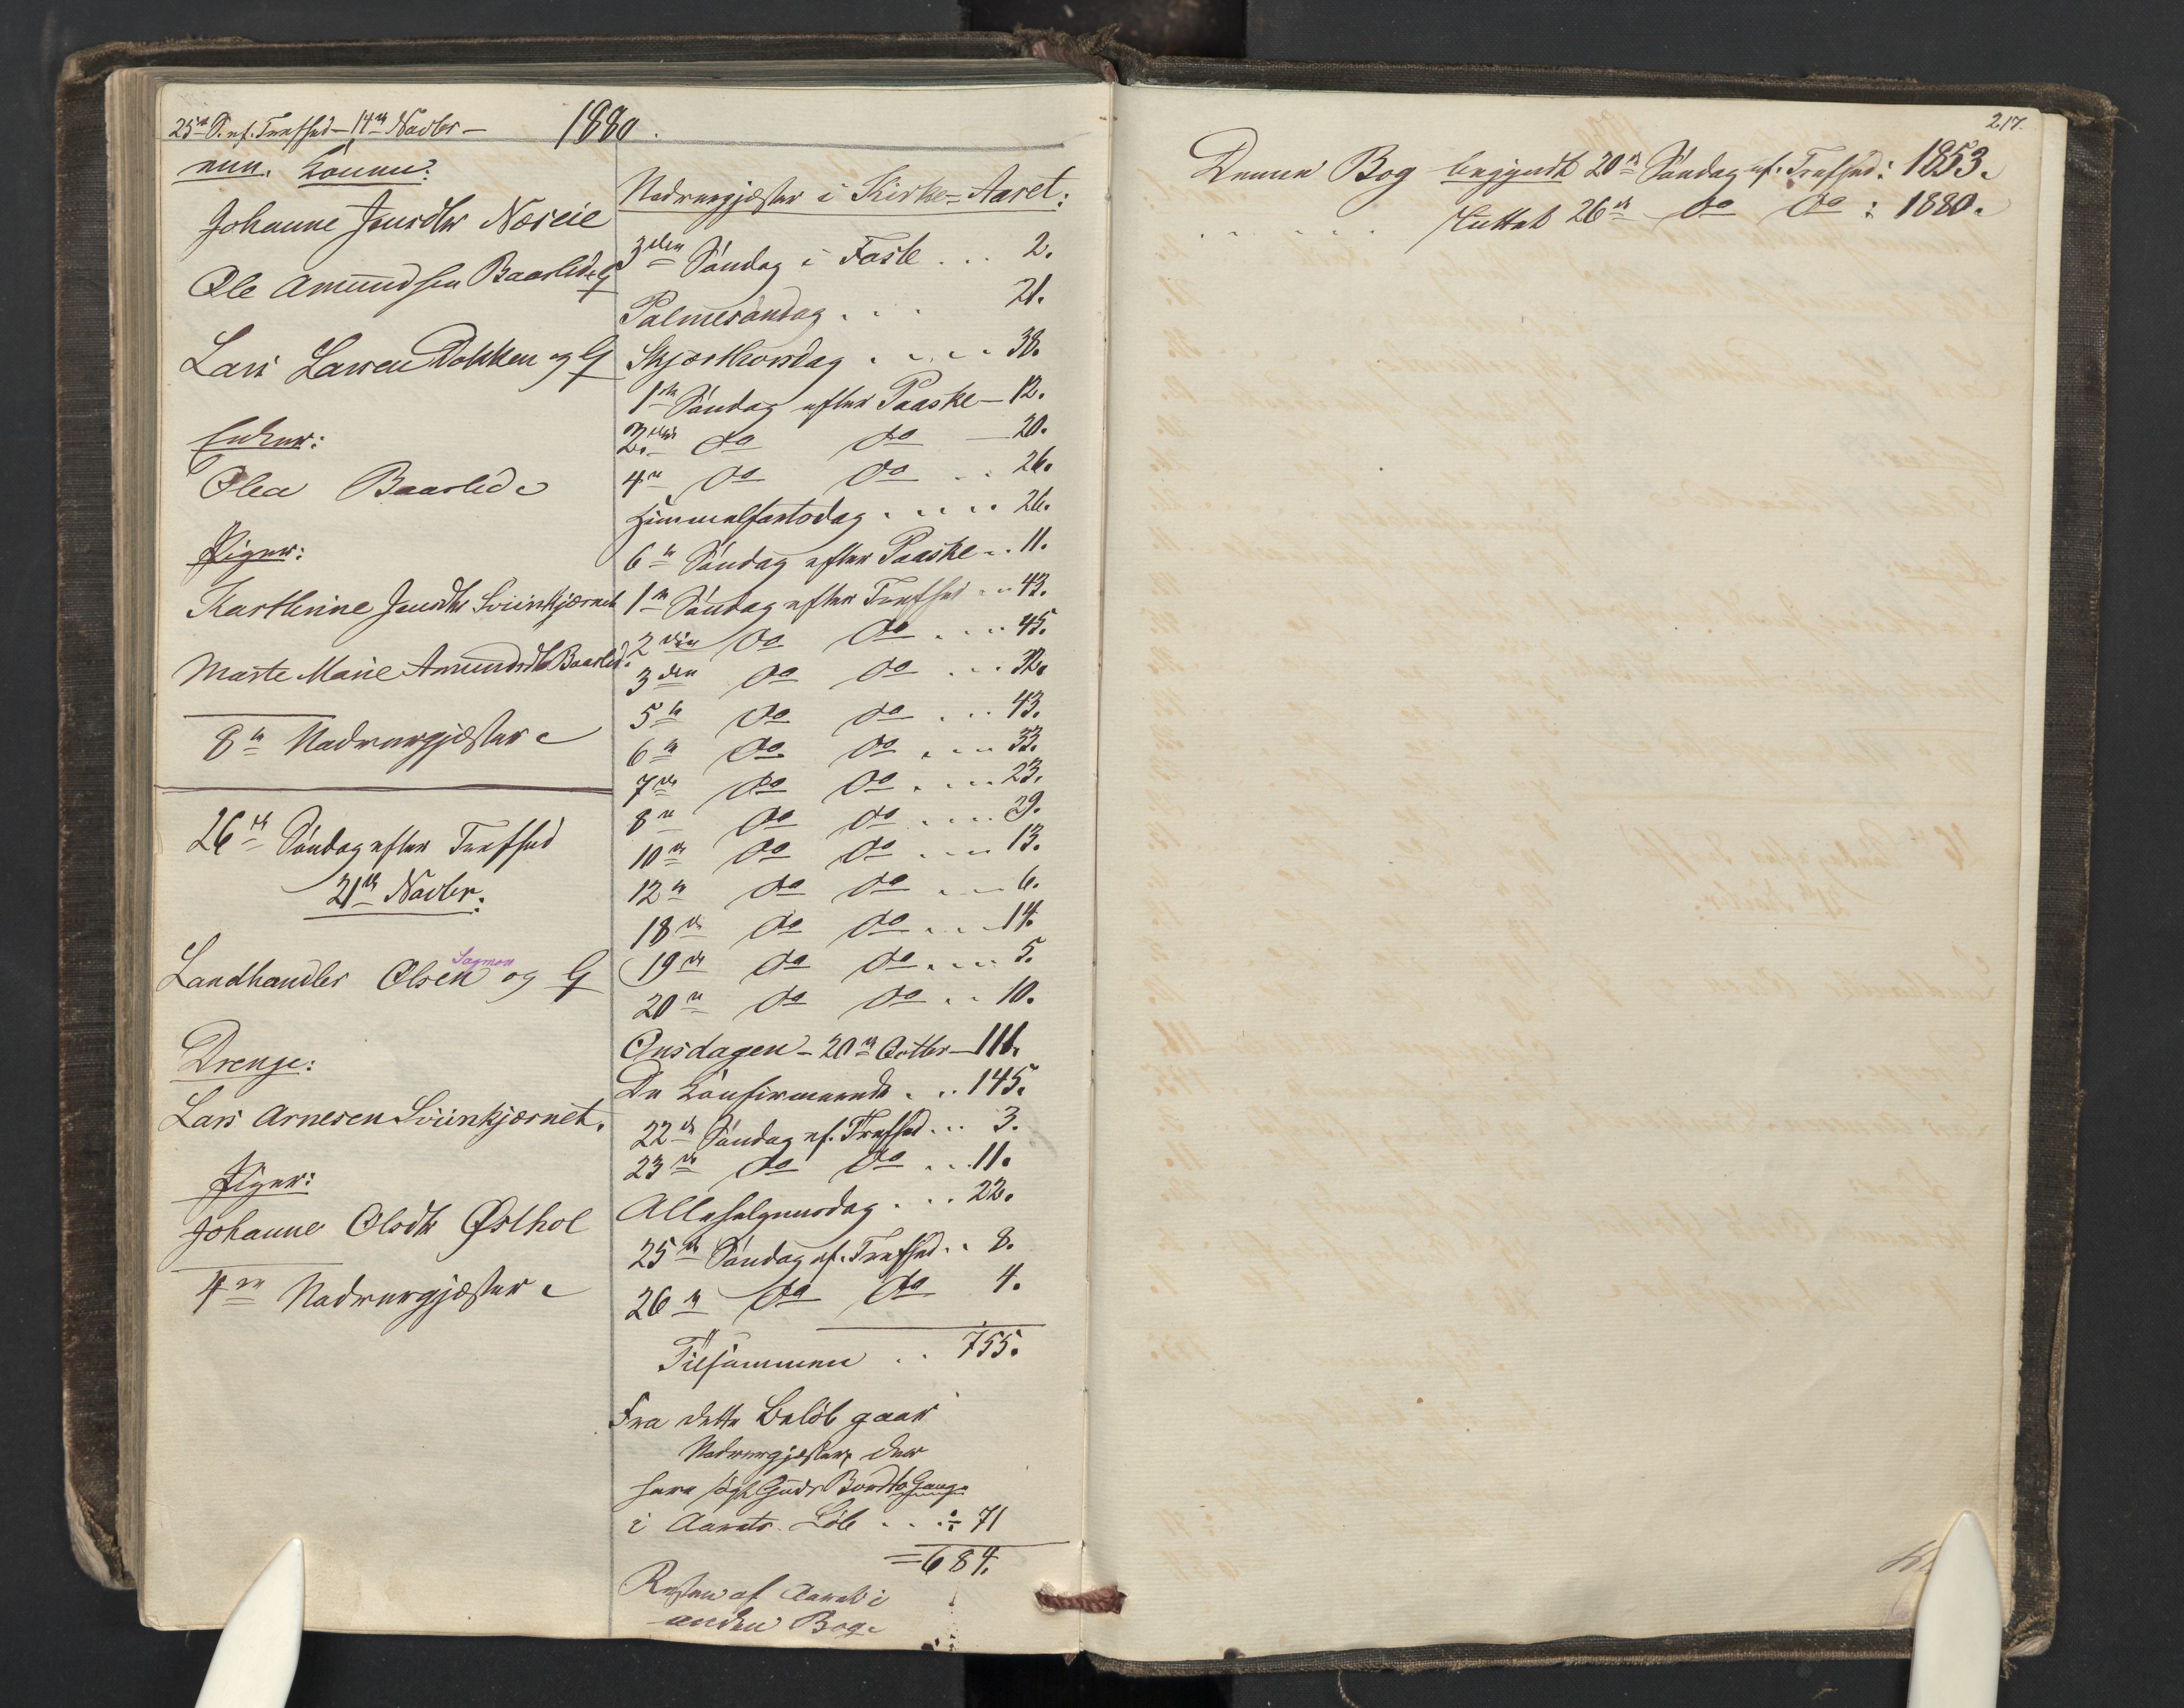 25de S. ef. Trefhed - 14de Novbr - 1880.
enn. Konner:
Johanne Jensdtr Noreie
Ole Amundsen Baaslid & G
Lars Larsen Dokken og G
Enker:
Olea Baaslid
Piger:
Karthrine Jensdtr Sviinkjærnet
Marte Marie Amundsdtr Baaslid.
8te Nadvergjæster
26de Søndag efter Trefhed
21de Novbr:
Landhandler Olsen og G
Sagmon
Drenge:
Lars Arnesen Sviinkjærnet.
Piger:
Johanne Olsdtr Østhol
4re Nadvergjæster
Nadvergjæster i Kirke=Aaret:
3den Søndag i Faste . . . 2.
Palmesøndag . . . 21.
Skjærthorsdag . . . . 38.
1ste Søndag efter Paaske - 12.
2den do do - 20.
4de do do . . 26.
Himmelfartsdag . . . . 26.
6te Søndag efter Paaske . . 11.
1ste Søndag efter Trefhed . . 43.
2den do do . . . 45.
3den do do . . . 32.
5te do do . . . 43.
6te do do . . . 33.
7de do do . . . 23.
8de do do . . . . 29.
10de do do . . . 13.
12te do do . . . 6.
18de do do . . . 14.
19de do do . . . 5.
20de do do . . 10.
Onsdagen - 20de Octbr - 111.
De Konfirmerede . . . 145.
22de Søndag ef. Trefhed . . . 3.
23de do do . . . 11.
Allehelgensdag . . . 22.
25de Søndag ef. Trefhed . . 8.
26de do do 4.
Tilsammen . . 755.
Fra dette Beløb gaar
Nadvergjæster, der
have søgt Guds Bord to Gange
i Aarets Løb . . . ÷ 71
= 684.
Resten af Aaret i
anden Bog.
217.
Denne Bog begyndt 20de Søndag ef. Trefhed: 1853.
. . . . . Sluttet 26de do do : 1880.